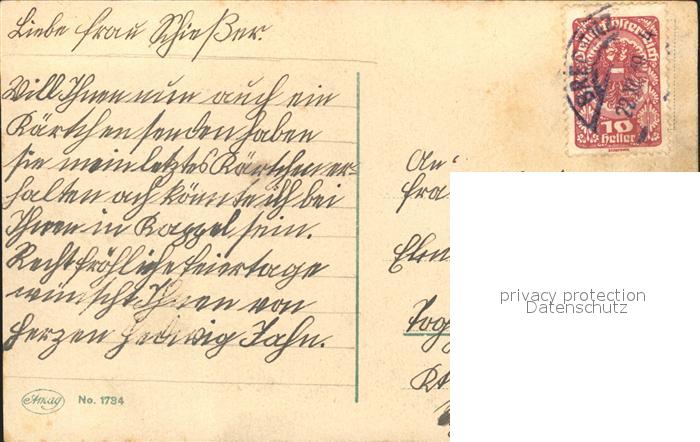 Liebe Frau Schießer.
Will Ihnen nun auch ein
Kärtchen senden haben
sie mein letztes Kärtchen er-
halten ach könnte ich bei
Ihnen in Kappel sein.
Recht fröhliche Feiertage
wünscht Ihnen von
Herzen Hedwig Jahn.
Amag No. 1784
Deutschösterreich
10
Heller
BREGENZ
An
Frau
Togg
privacy protection
Datenschutz